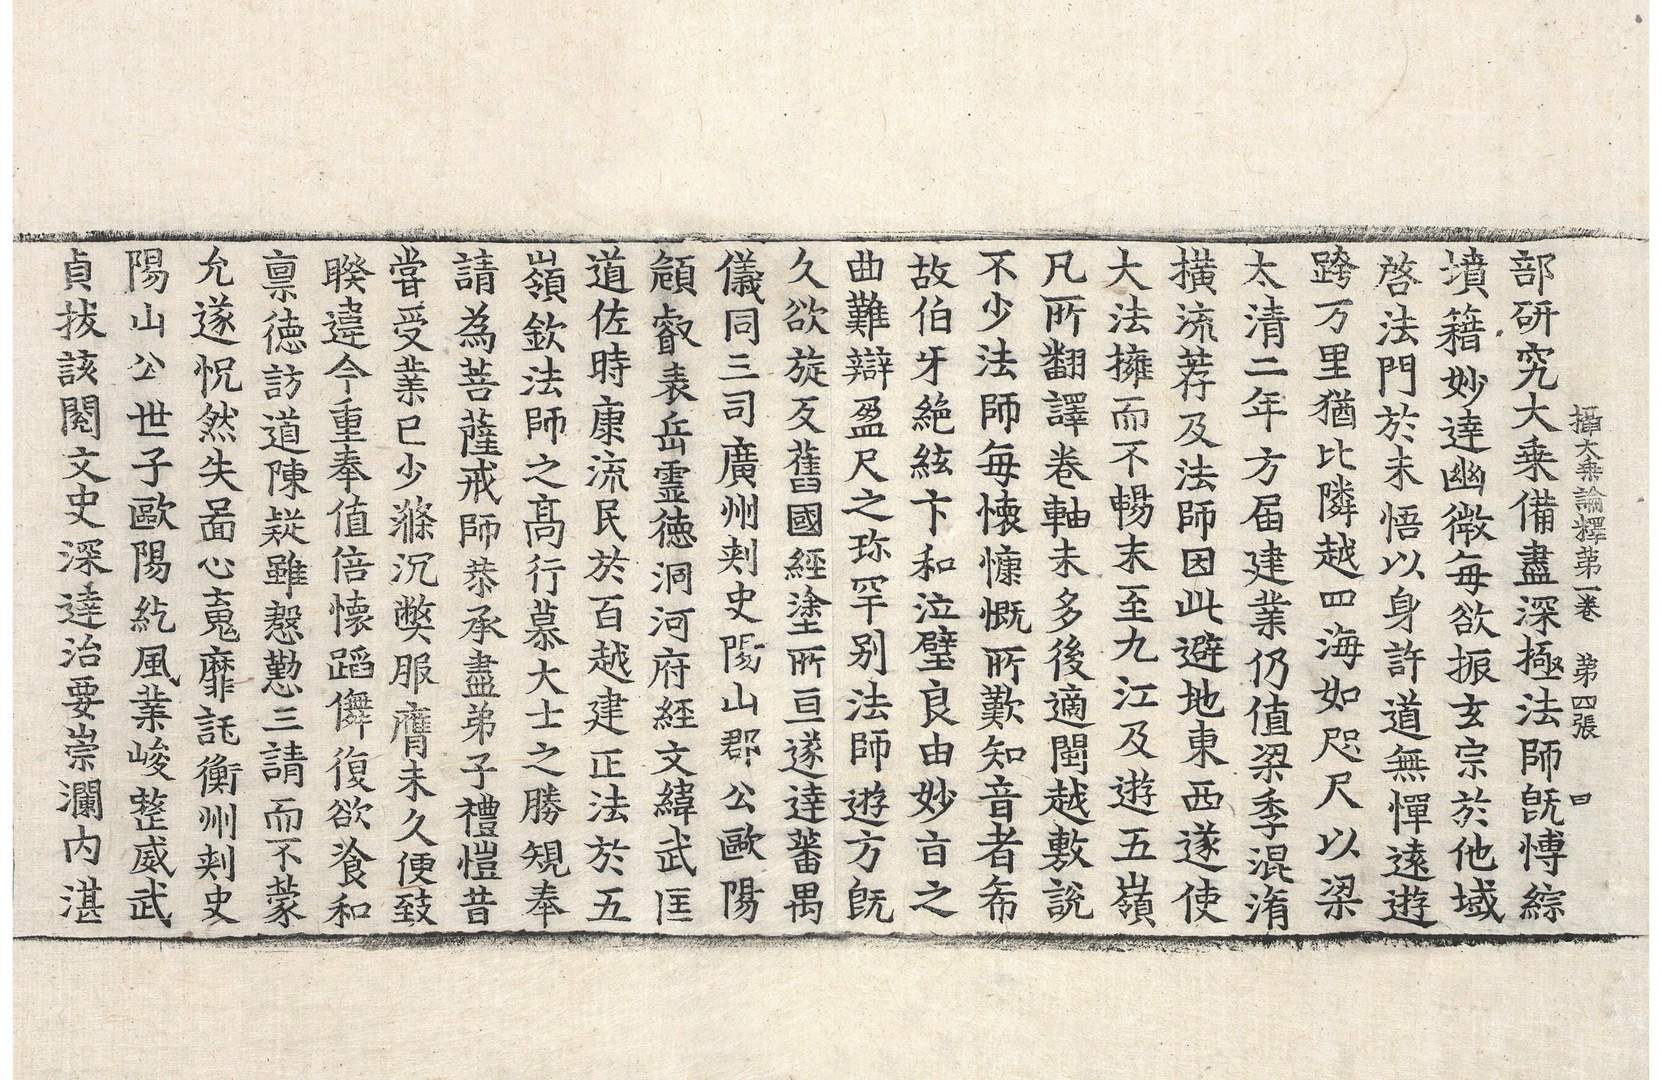 攝大乘論釋第一卷　第四張　曰
部研究大乗備盡深極法師旣愽綜
墳籍妙逹幽微每欲振玄宗於他域
啓法門於未悟以身許道無憚遠遊
跨万里猶比隣越四海如咫尺以梁
太清二年方届建業仍值梁季混淆
横流荐及法師因此避地東西遂使
大法擁而不暢末至九江及遊五嶺
凡所翻譯卷軸未多後適閩越敷說
不少法師每懐慷慨所歎知音者希
故伯牙絶絃卞和泣璧良由妙旨之
曲難辯盈尺之珎罕別法師遊方旣
久欲旋反舊國經塗所亘遂逹蕃禺
儀同三司廣州刾史陽山郡公歐陽
頠叡表岳靈德洞河府經文緯武匡
道佐時康流民於百越建正法於五
嶺欽法師之髙行慕大士之勝規奉
請為菩薩戒師恭承盡弟子禮愷昔
嘗受業已少滌沉弊服膺未久便致
睽違今重奉值倍懐蹈儛復欲飡和
禀德訪道陳疑雖慇懃三請而不蒙
允遂怳然失啚心蒐靡託衡州刾史
陽山公世子歐陽紇風業峻整威武
貞拔該閱文史深逹治要崇瀾内湛